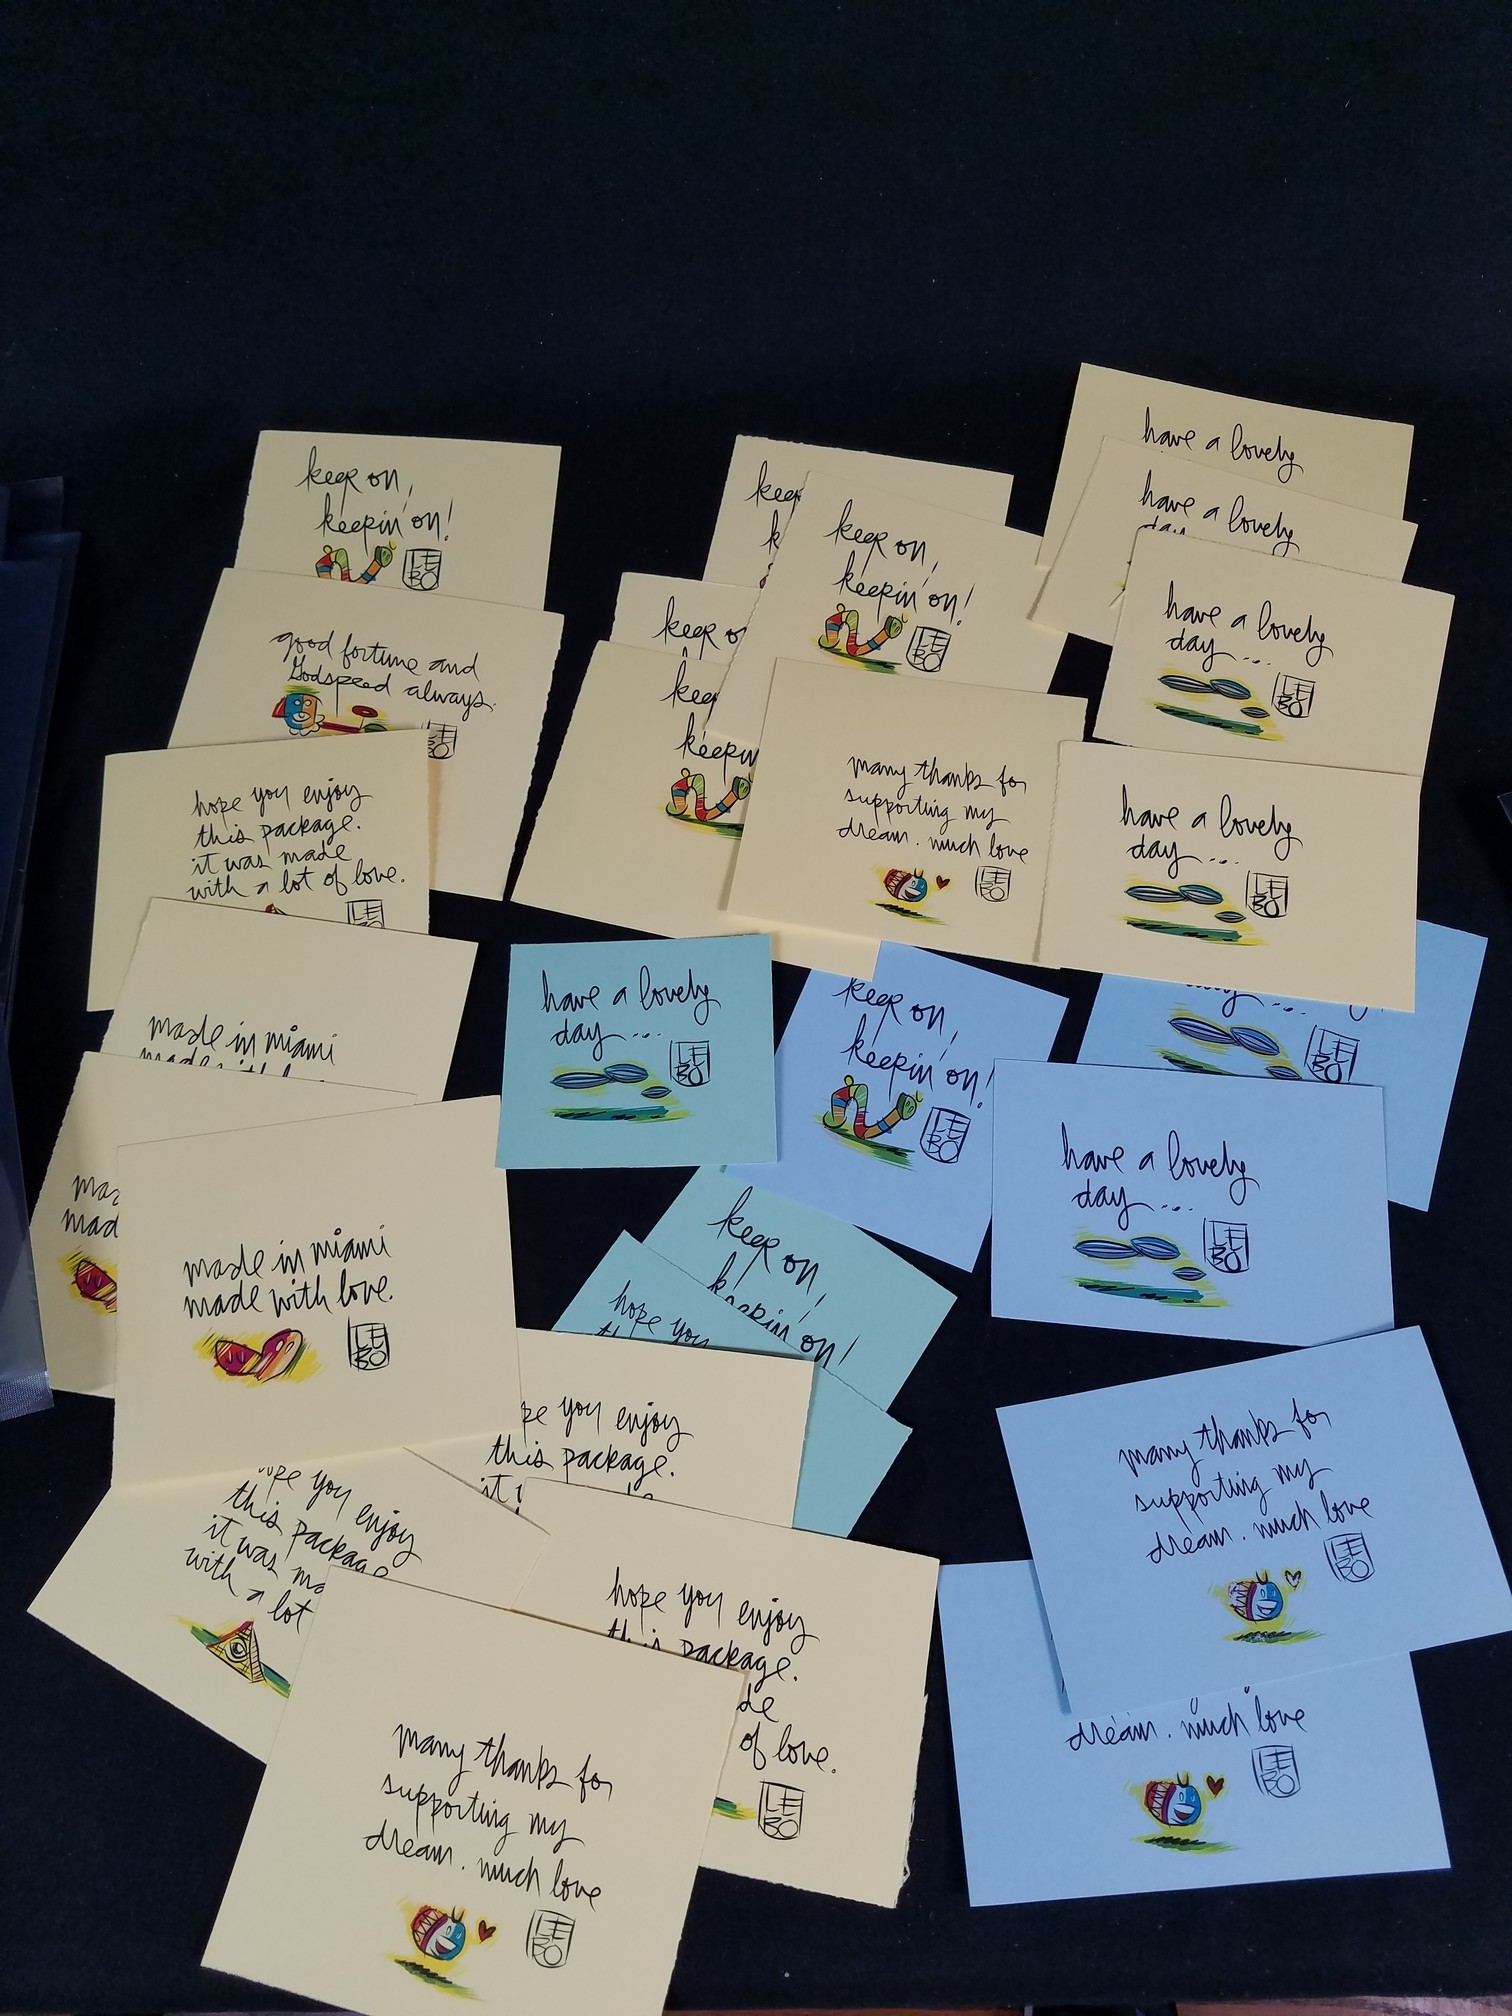 keep on,
keepin' on!
LEBO
good fortune and
Godspeed always.
LEBO
hope you enjoy
this package.
it was made
with a lot of love.
LEBO
made in miami
made with love
made in miami
made with love.
LEBO
keep
keep on
keep
keepin'
keep on,
keepin' on!
LEBO
many thanks for
supporting my
dream. much love
LEBO
have a lovely
have a lovely
day
have a lovely
day....
LEBO
have a lovely
day....
LEBO
have a lovely
day....
LEBO
keep on,
keepin' on!
LEBO
day....
LEBO
have a lovely
day....
LEBO
keep on,
keepin' on!
hope you
you enjoy
this package.
hope you enjoy
this package
it was
with a lot
hope you enjoy
this package.
of love.
LEBO
many thanks for
supporting my
dream. much love
LEBO
many thanks for
supporting my
dream. much love
LEBO
dream. much love
LEBO